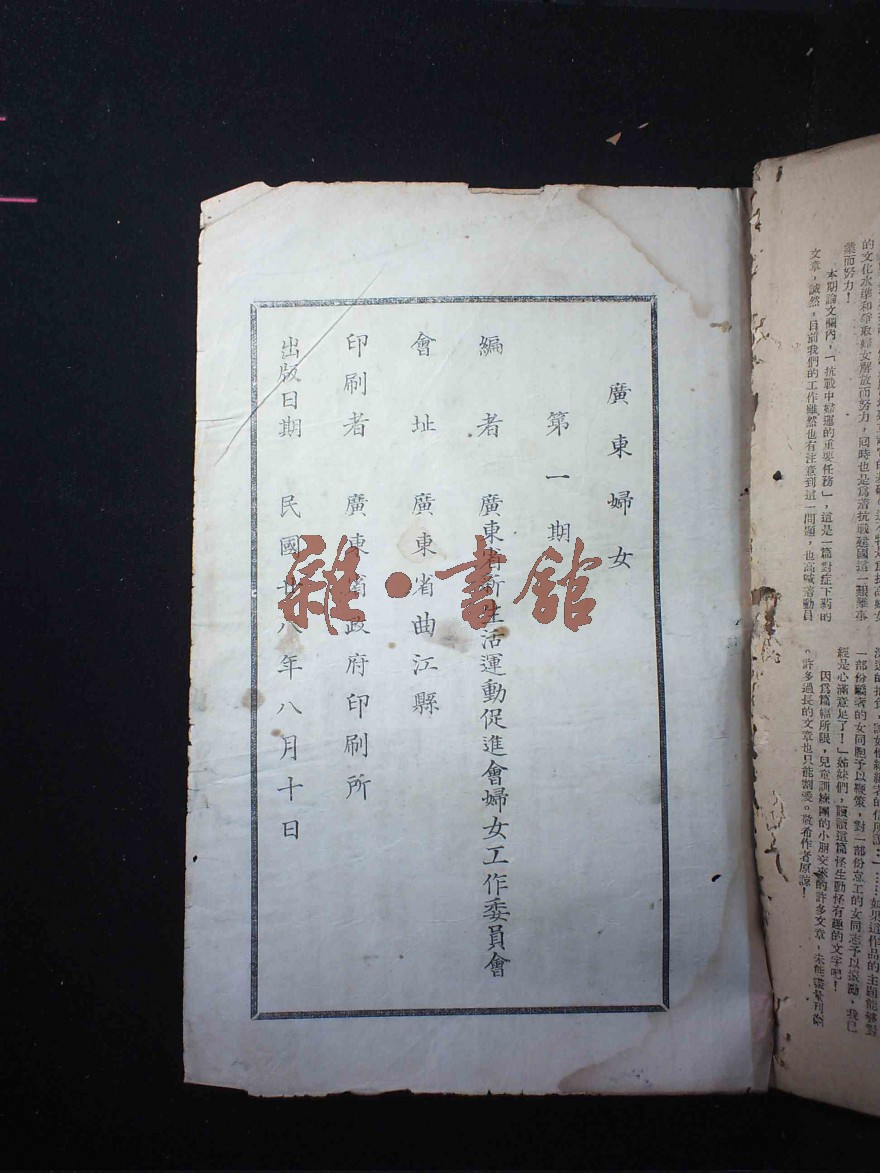 廣東婦女
第一期
編者 廣東省新生活運動促進會婦女工作委員會
會址 廣東省曲江縣
印刷者 廣東省政府印刷所
出版日期 民國廿八年八月十日
雜·書館
的文化水準和爭取婦女解放而努力,同時也是爲着抗戰建國這一艱難事
業而努力!
本期論文欄內,「抗戰中婦運的重要任務」,這是一篇對症下葯的
文章,誠然,目前我們的工作雖然也有注意到這一問題,也高喊着動員
一部份驕者的女同胞予以鞭策,對一部份怠工的女同志予以激勵,我已
經是心滿意足了!」姊妹們,讀讀這篇怪生動怪有趣的文字吧!
因爲篇幅所限,兒童訓練團的小朋友來的許多文章,未能盡量刊露
。許多過長的文章也只能割愛。敬希作者原諒!